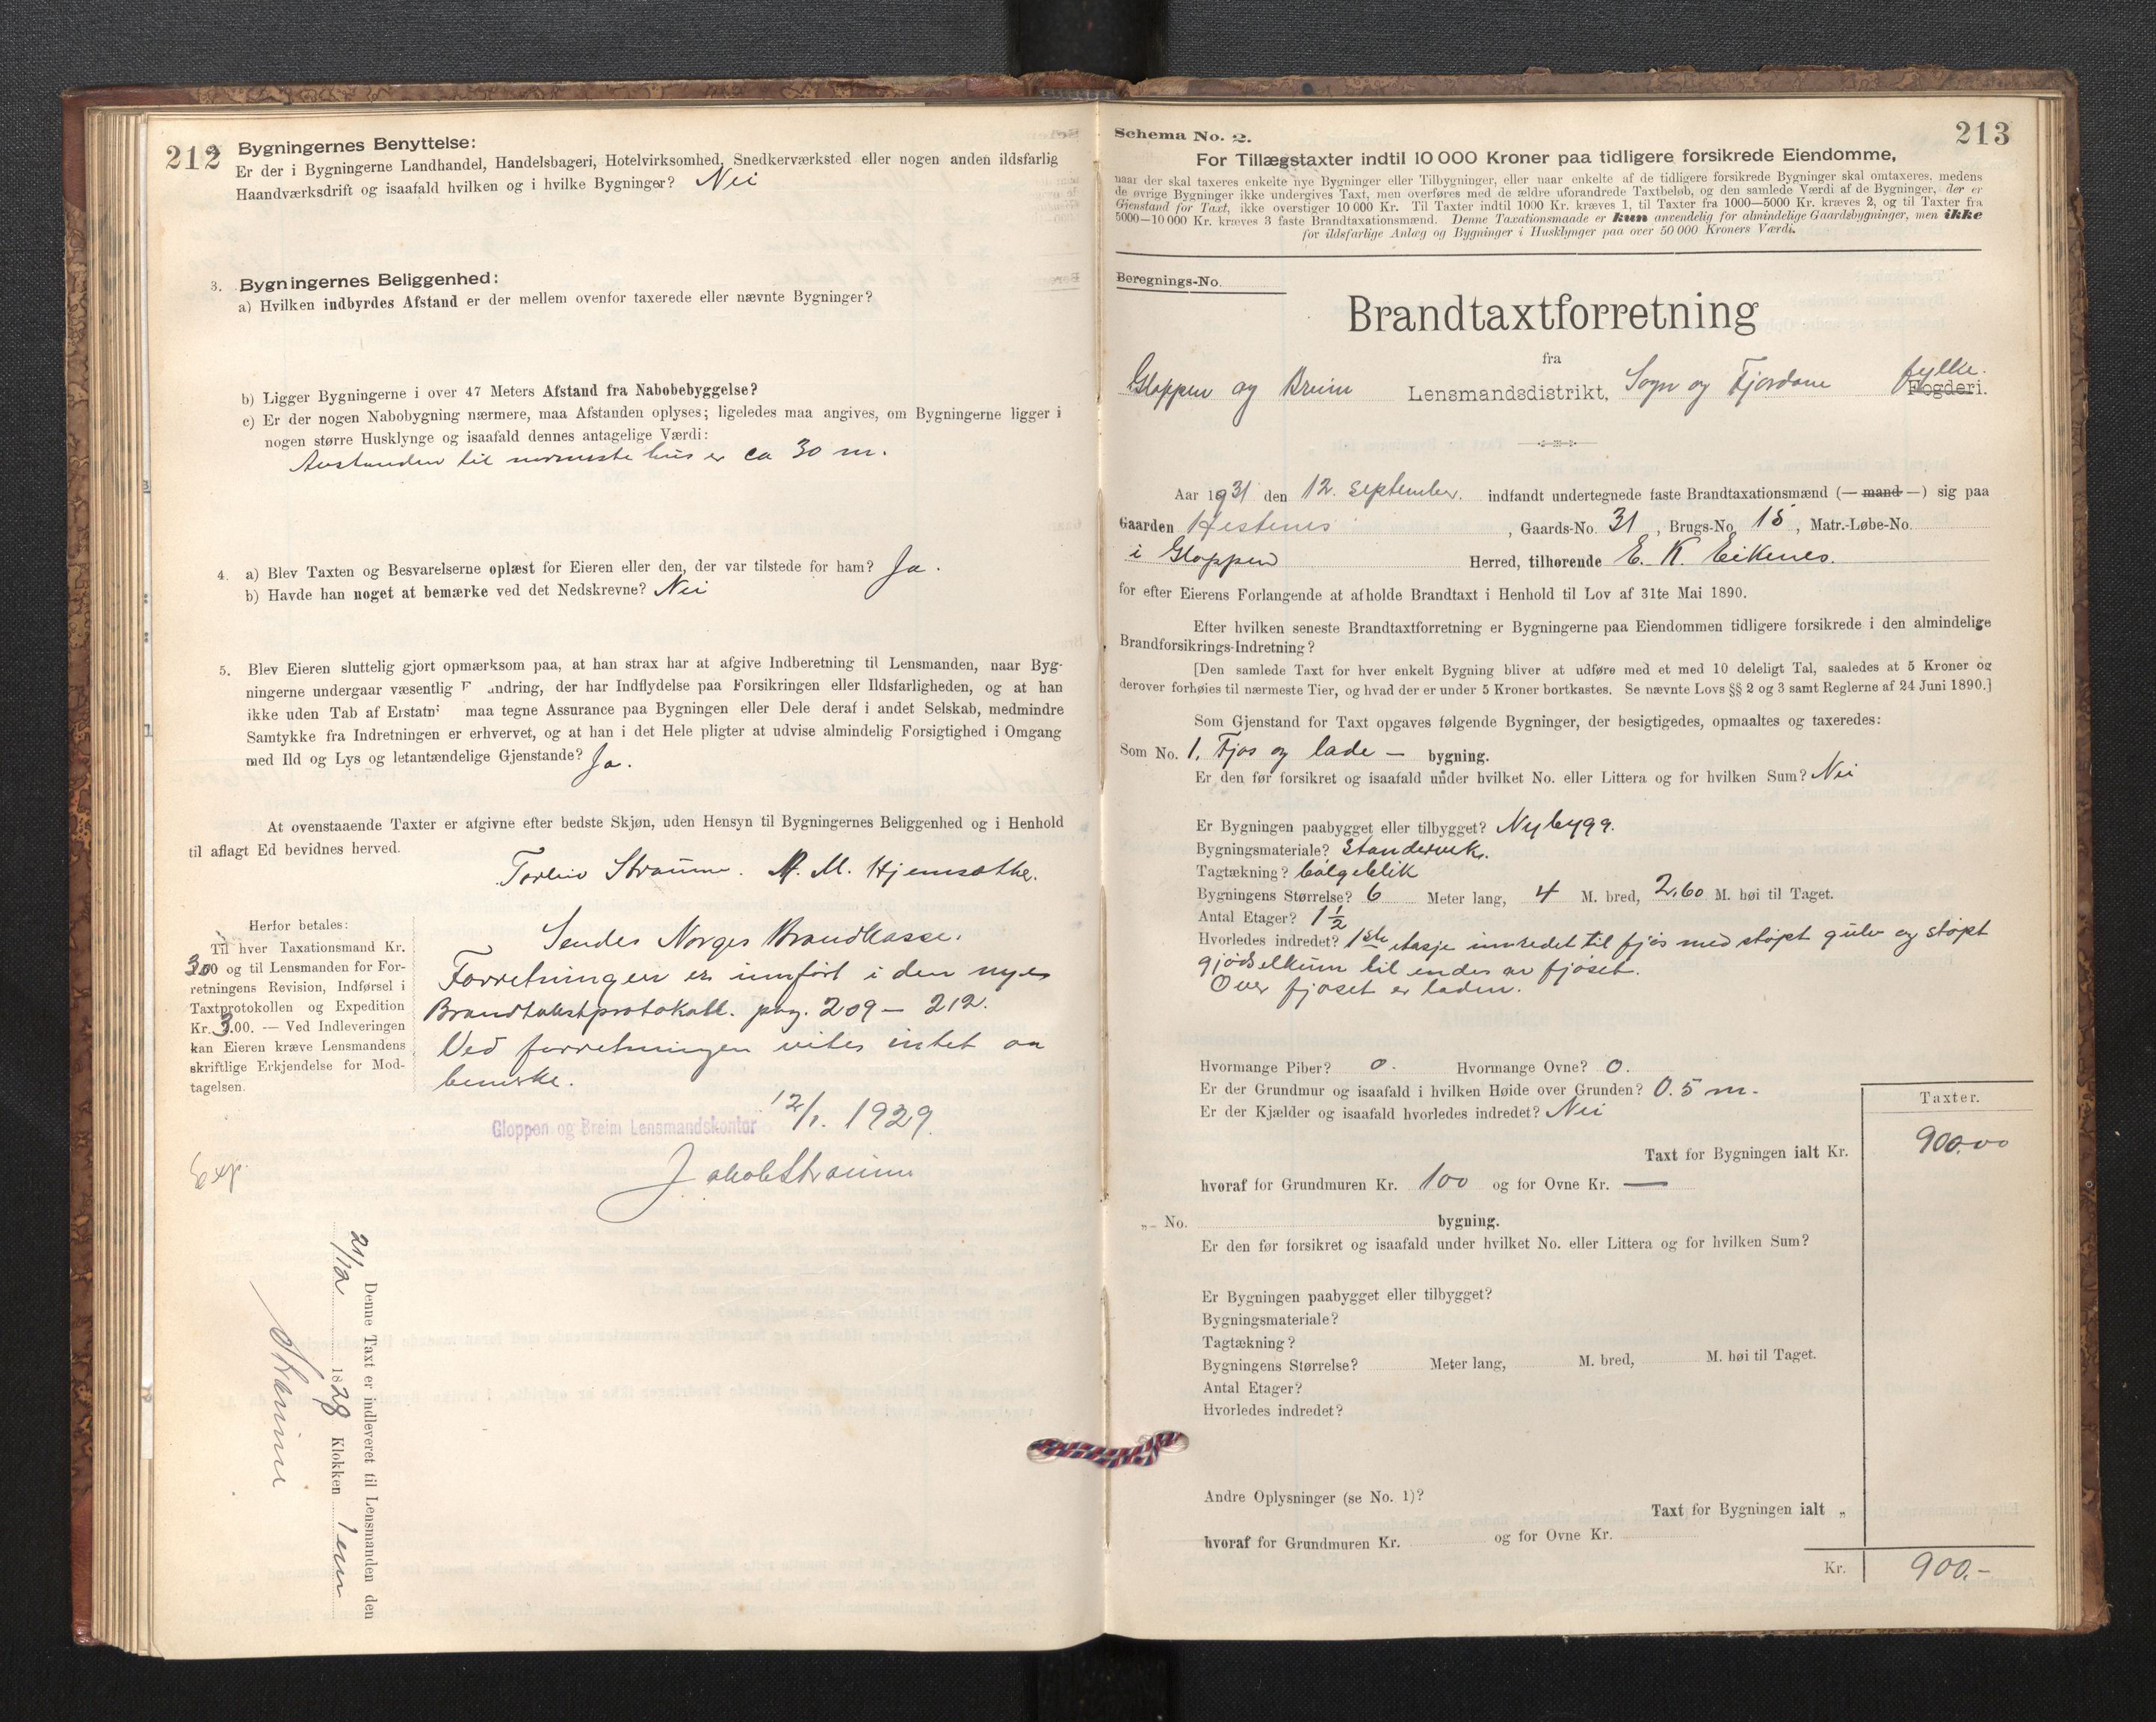 212
Bygningernes Benyttelse:
Er der i Bygningerne Landhandel, Handelsbageri, Hotelvirksomhed, Snedkerværksted eller nogen anden ildsfarlig
Haandværksdrift og isaafald hvilken og i hvilke Bygninger? Nei
3. Bygningernes Beliggenhed:
a) Hvilken indbyrdes Afstand er der mellem ovenfor taxerede eller nævnte Bygninger?
b) Ligger Bygningerne i over 47 Meters Afstand fra Nabobebyggelse?
c) Er der nogen Nabobygning nærmere, maa Afstanden oplyses; ligeledes maa angives, om Bygningerne ligger i
nogen større Husklynge og isaafald dennes antagelige Værdi:
Avstanden til nærmeste hus er ca 30 m.
4. a) Blev Taxten og Besvarelserne oplæst for Eieren eller den, der var tilstede for ham? Ja.
b) Havde han noget at bemærke ved det Nedskrevne? Nei
5. Blev Eieren sluttelig gjort opmærksom paa, at han strax har at afgive Indberetning til Lensmanden, naar Byg-
ningerne undergaar væsentlig F andring, der har Indflydelse paa Forsikringen eller Ildsfarligheden, og at han
ikke uden Tab af Erstatn maa tegne Assurance paa Bygningen eller Dele deraf i andet Selskab, medmindre
Samtykke fra Indretningen er erhvervet, og at han i det Hele pligter at udvise almindelig Forsigtighed i Omgang
med Ild og Lys og letantændelige Gjenstande? Ja.
At ovenstaaende Taxter er afgivne efter bedste Skjøn, uden Hensyn til Bygningernes Beliggenhed og i Henhold
til aflagt Ed bevidnes herved.
Torleiv Straume. M. M. Hjemsæther.
Herfor betales:
Til hver Taxationsmand Kr.
3.00 og til Lensmanden for For-
retningens Revision, Indførsel i
Taxtprotokollen og Expedition
Kr. 3.00. — Ved Indleveringen
kan Eieren kræve Lensmandens
skriftlige Erkjendelse for Mod-
tagelsen.
Sendes Norges Brandkasse.
Forretningen er innført i den nye
Brandtakstprotokoll. pag. 209 – 212.
Ved forretningen vites intet aa
bemerke.
12/1. 1929.
Gloppen og Breim Lensmandskontor
Jakob Straume
Exp.
Denne Taxt er indleveret til Lensmanden den
21/12 1828 Klokken 1 em
Straume
Schema No. 2.
213
For Tillægstaxter indtil 10 000 Kroner paa tidligere forsikrede Eiendomme,
naar der skal taxeres enkelte nye Bygninger eller Tilbygninger, eller naar enkelte af de tidligere forsikrede Bygninger skal omtaxeres, medens
de øvrige Bygninger ikke undergives Taxt, men overføres med de ældre uforandrede Taxtbeløb, og den samlede Værdi af de Bygninger, der er
Gjenstand for Taxt, ikke overstiger 10 000 Kr. Til Taxter indtil 1000 Kr. kræves 1, til Taxter fra 1000—5000 Kr. kræves 2, og til Taxter fra
5000—10 000 Kr. kræves 3 faste Brandtaxationsmænd. Denne Taxationsmaade er kun anvendelig for almindelige Gaardsbygninger, men ikke
for ildsfarlige Anlæg og Bygninger i Husklynger paa over 50 000 Kroners Værdi.
Beregnings-No.
Brandtaxtforretning
fra
Gloppen og Breim Lensmandsdistrikt, Sogn og Fjordane fylke.
Fogderi.
Aar 1931 den 12. september. indfandt undertegnede faste Brandtaxationsmænd (— mand —) sig paa
Gaarden Hestenes, Gaards-No. 31, Brugs-No. 15, Matr.-Løbe-No.
i Gloppen Herred, tilhørende E. K. Eikenes.
for efter Eierens Forlangende at afholde Brandtaxt i Henhold til Lov af 31te Mai 1890.
Efter hvilken seneste Brandtaxtforretning er Bygningerne paa Eiendommen tidligere forsikrede i den almindelige
Brandforsikrings-Indretning?
[Den samlede Taxt for hver enkelt Bygning bliver at udføre med et med 10 deleligt Tal, saaledes at 5 Kroner og
derover forhøies til nærmeste Tier, og hvad der er under 5 Kroner bortkastes. Se nævnte Lovs §§ 2 og 3 samt Reglerne af 24 Juni 1890.]
Som Gjenstand for Taxt opgaves følgende Bygninger, der besigtigedes, opmaaltes og taxeredes:
Som No. 1. Fjøs og lade — bygning.
Er den før forsikret og isaafald under hvilket No. eller Littera og for hvilken Sum? Nei
Er Bygningen paabygget eller tilbygget? Nybygg.
Bygningsmateriale? Standerverk.
Tagtækning? bølgeblik
Bygningens Størrelse? 6 Meter lang, 4 M. bred, 2.60 M. høi til Taget.
Antal Etager? 1 1/2
Hvorledes indredet? 1ste etasje innredet til fjøs med støpt gulv og støpt
gjødselkum til endes av fjøset.
Over fjøset er laden.
Hvormange Piber? 0. Hvormange Ovne? 0.
Er der Grundmur og isaafald i hvilken Høide over Grunden? 0.5 m.
Er der Kjælder og isaafald hvorledes indredet? Nei
Taxter.
Taxt for Bygningen ialt Kr. 900.00
hvoraf for Grundmuren Kr. 100 og for Ovne Kr. —
„ No. bygning.
Er den før forsikret og isaafald under hvilket No. eller Littera og for hvilken Sum?
Er Bygningen paabygget eller tilbygget?
Bygningsmateriale?
Tagtækning?
Bygningens Størrelse? Meter lang, M. bred, M. høi til Taget.
Antal Etager?
Hvorledes indredet?
Andre Oplysninger (se No. 1)?
Taxt for Bygningen ialt „
hvoraf for Grundmuren Kr. og for Ovne Kr.
Kr. 900.-